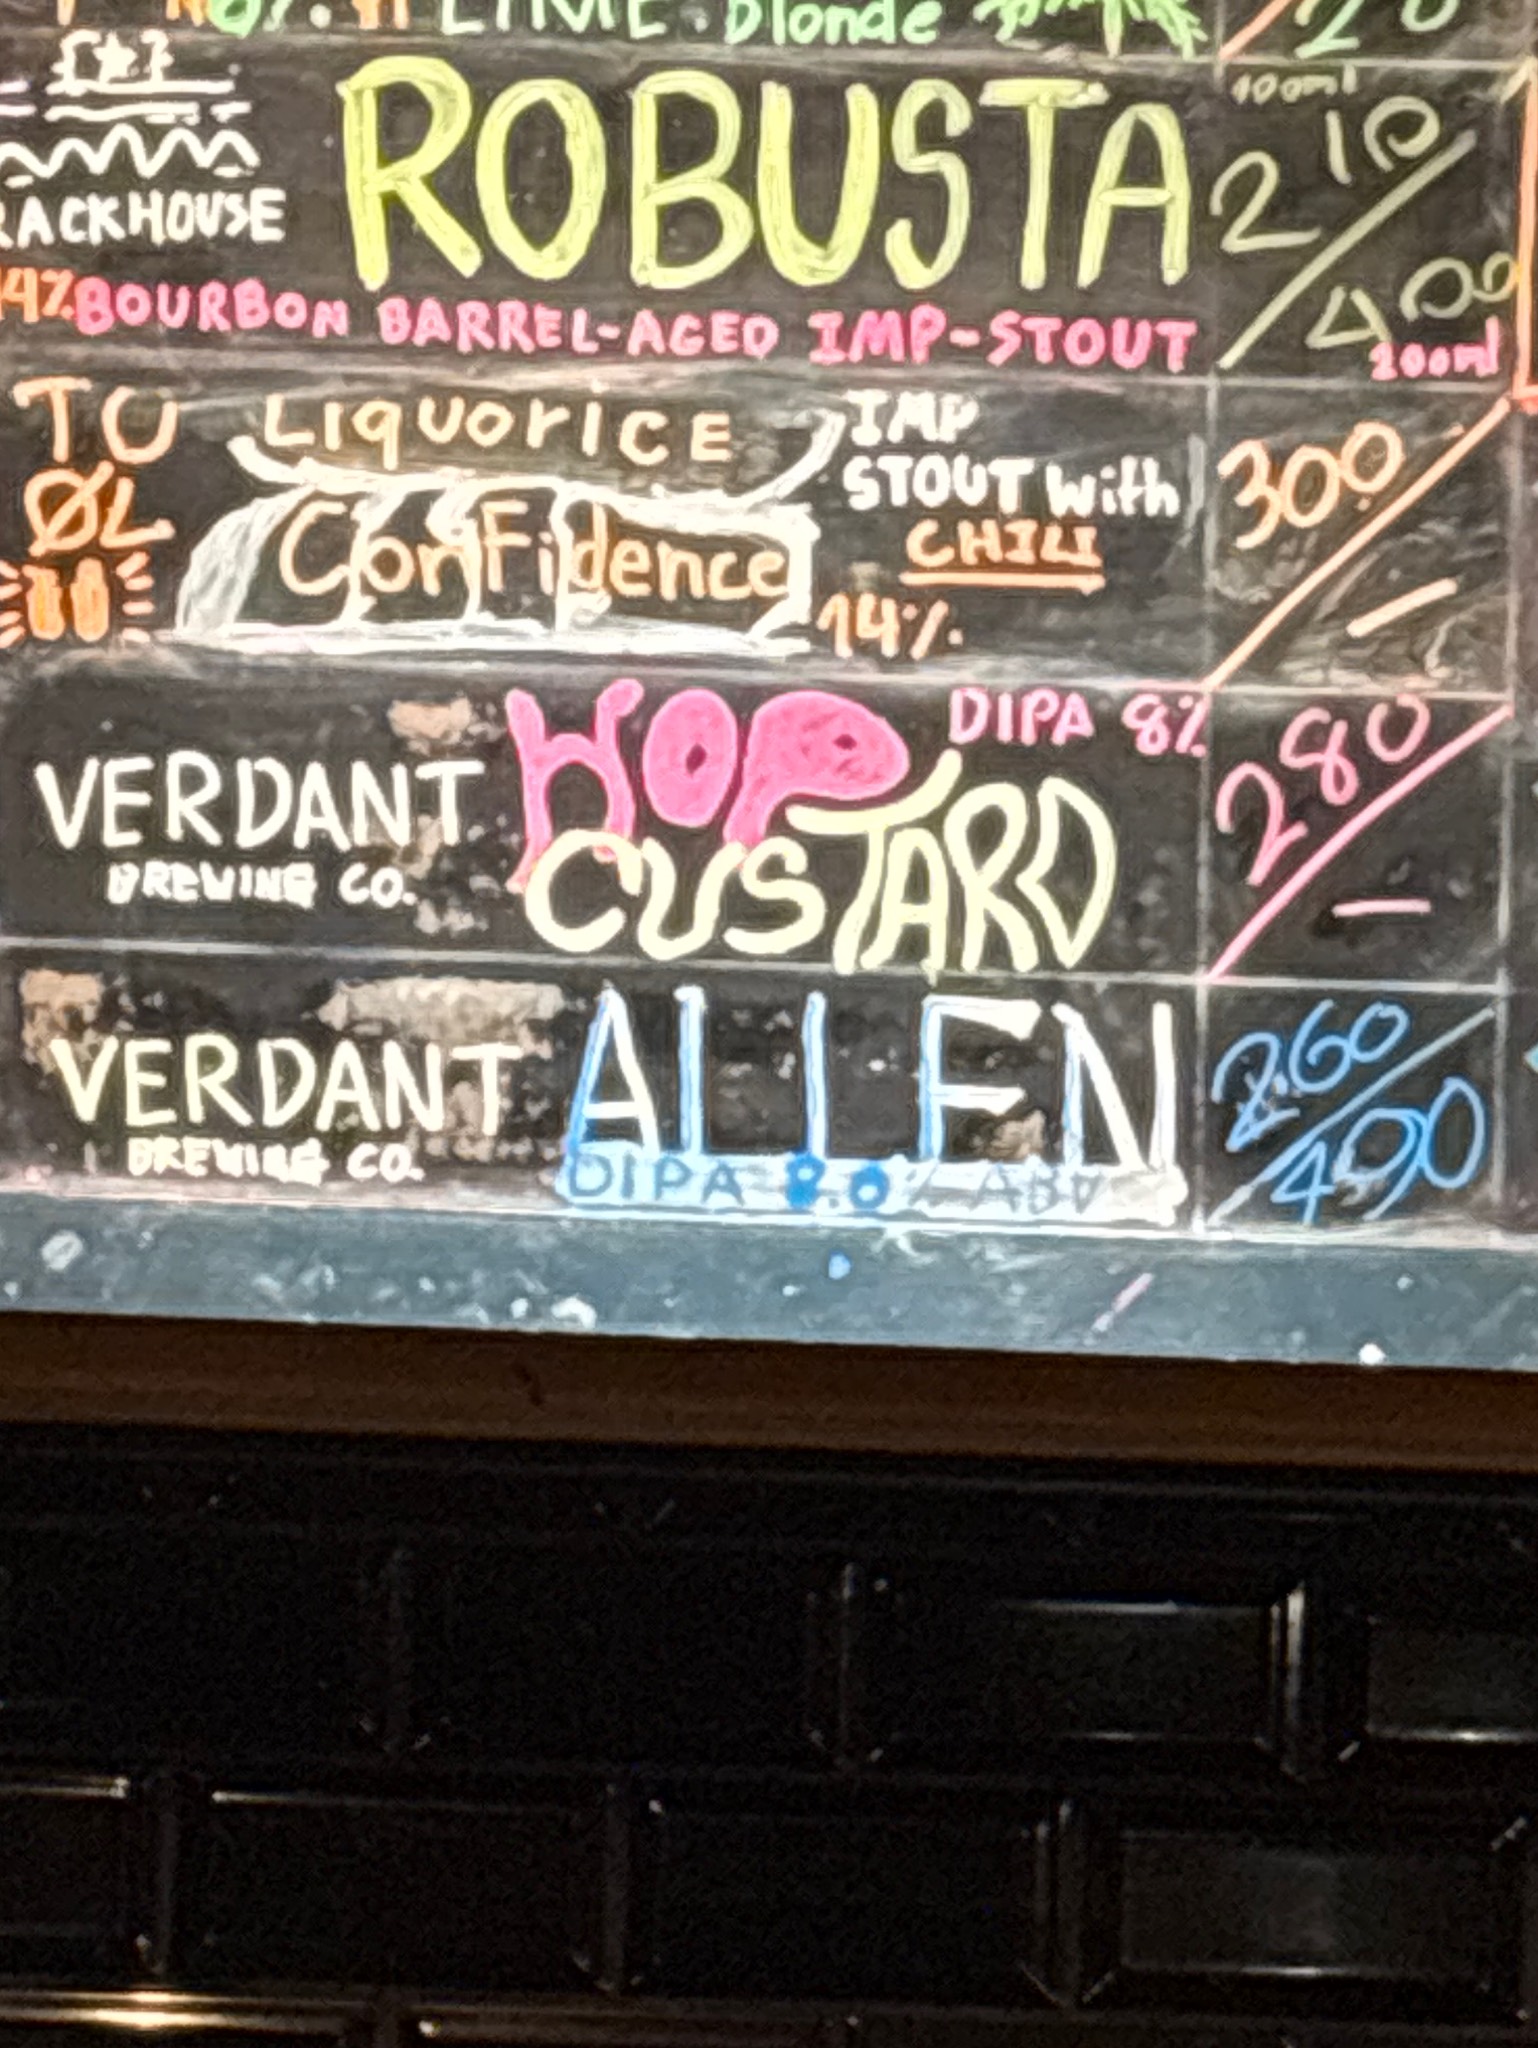 LIME. Blonde
100ml
RACKHOUSE ROBUSTA 210/400
14% BOURBON BARREL-AGED IMP-STOUT 200ml
TO ØL
LIQUORICE ConFidence
IMP
STOUT with
CHILI
14%.
300/-
VERDANT
BREWING CO.
HOP
CUSTARD
DIPA 8%
280/-
VERDANT
BREWING CO.
ALLEN
DIPA 8.0% ABV
260/490